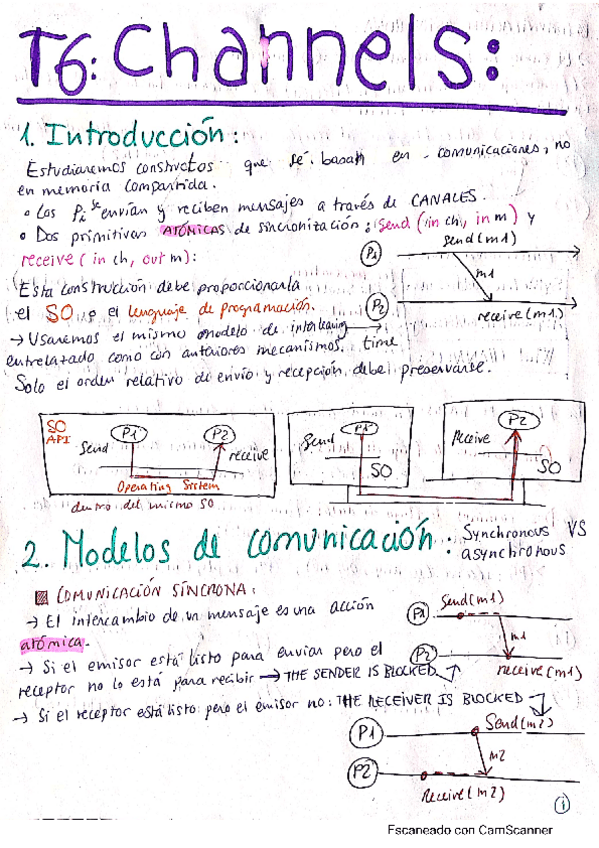 T6: Channels:
1. Introducción:
Estudiaremos constructos que se basan en comunicaciones, no
en memoria compartida.
• Los Pi se envían y reciben mensajes a través de CANALES.
• Dos primitivas ATÓMICAS de sincronización: send (in ch, in m) y
receive (in ch, out m):
P1 send(m1)
m1
P2 receive(m1)
time
Esta construcción debe proporcionarla
el SO o el lenguaje de programación.
→ Usaremos el mismo modelo de interleaving
entrelazado como con anteriores mecanismos.
Solo el orden relativo de envío y recepción debe preservarse.
SO
API
Send P1 P2 receive
Operating System
dentro del mismo SO
Send P1
SO
Receive P2
SO
2. Modelos de comunicación: Synchronous VS
asynchronous
COMUNICACIÓN SÍNCRONA:
→ El intercambio de un mensaje es una acción
atómica.
→ Si el emisor está listo para enviar pero el
receptor no lo está para recibir → THE SENDER IS BLOCKED
→ Si el receptor está listo pero el emisor no: THE RECEIVER IS BLOCKED
P1 Send(m1)
m1
P2 receive(m1)
P1 Send(m2)
m2
P2 Receive(m2)
1
Escaneado con CamScanner